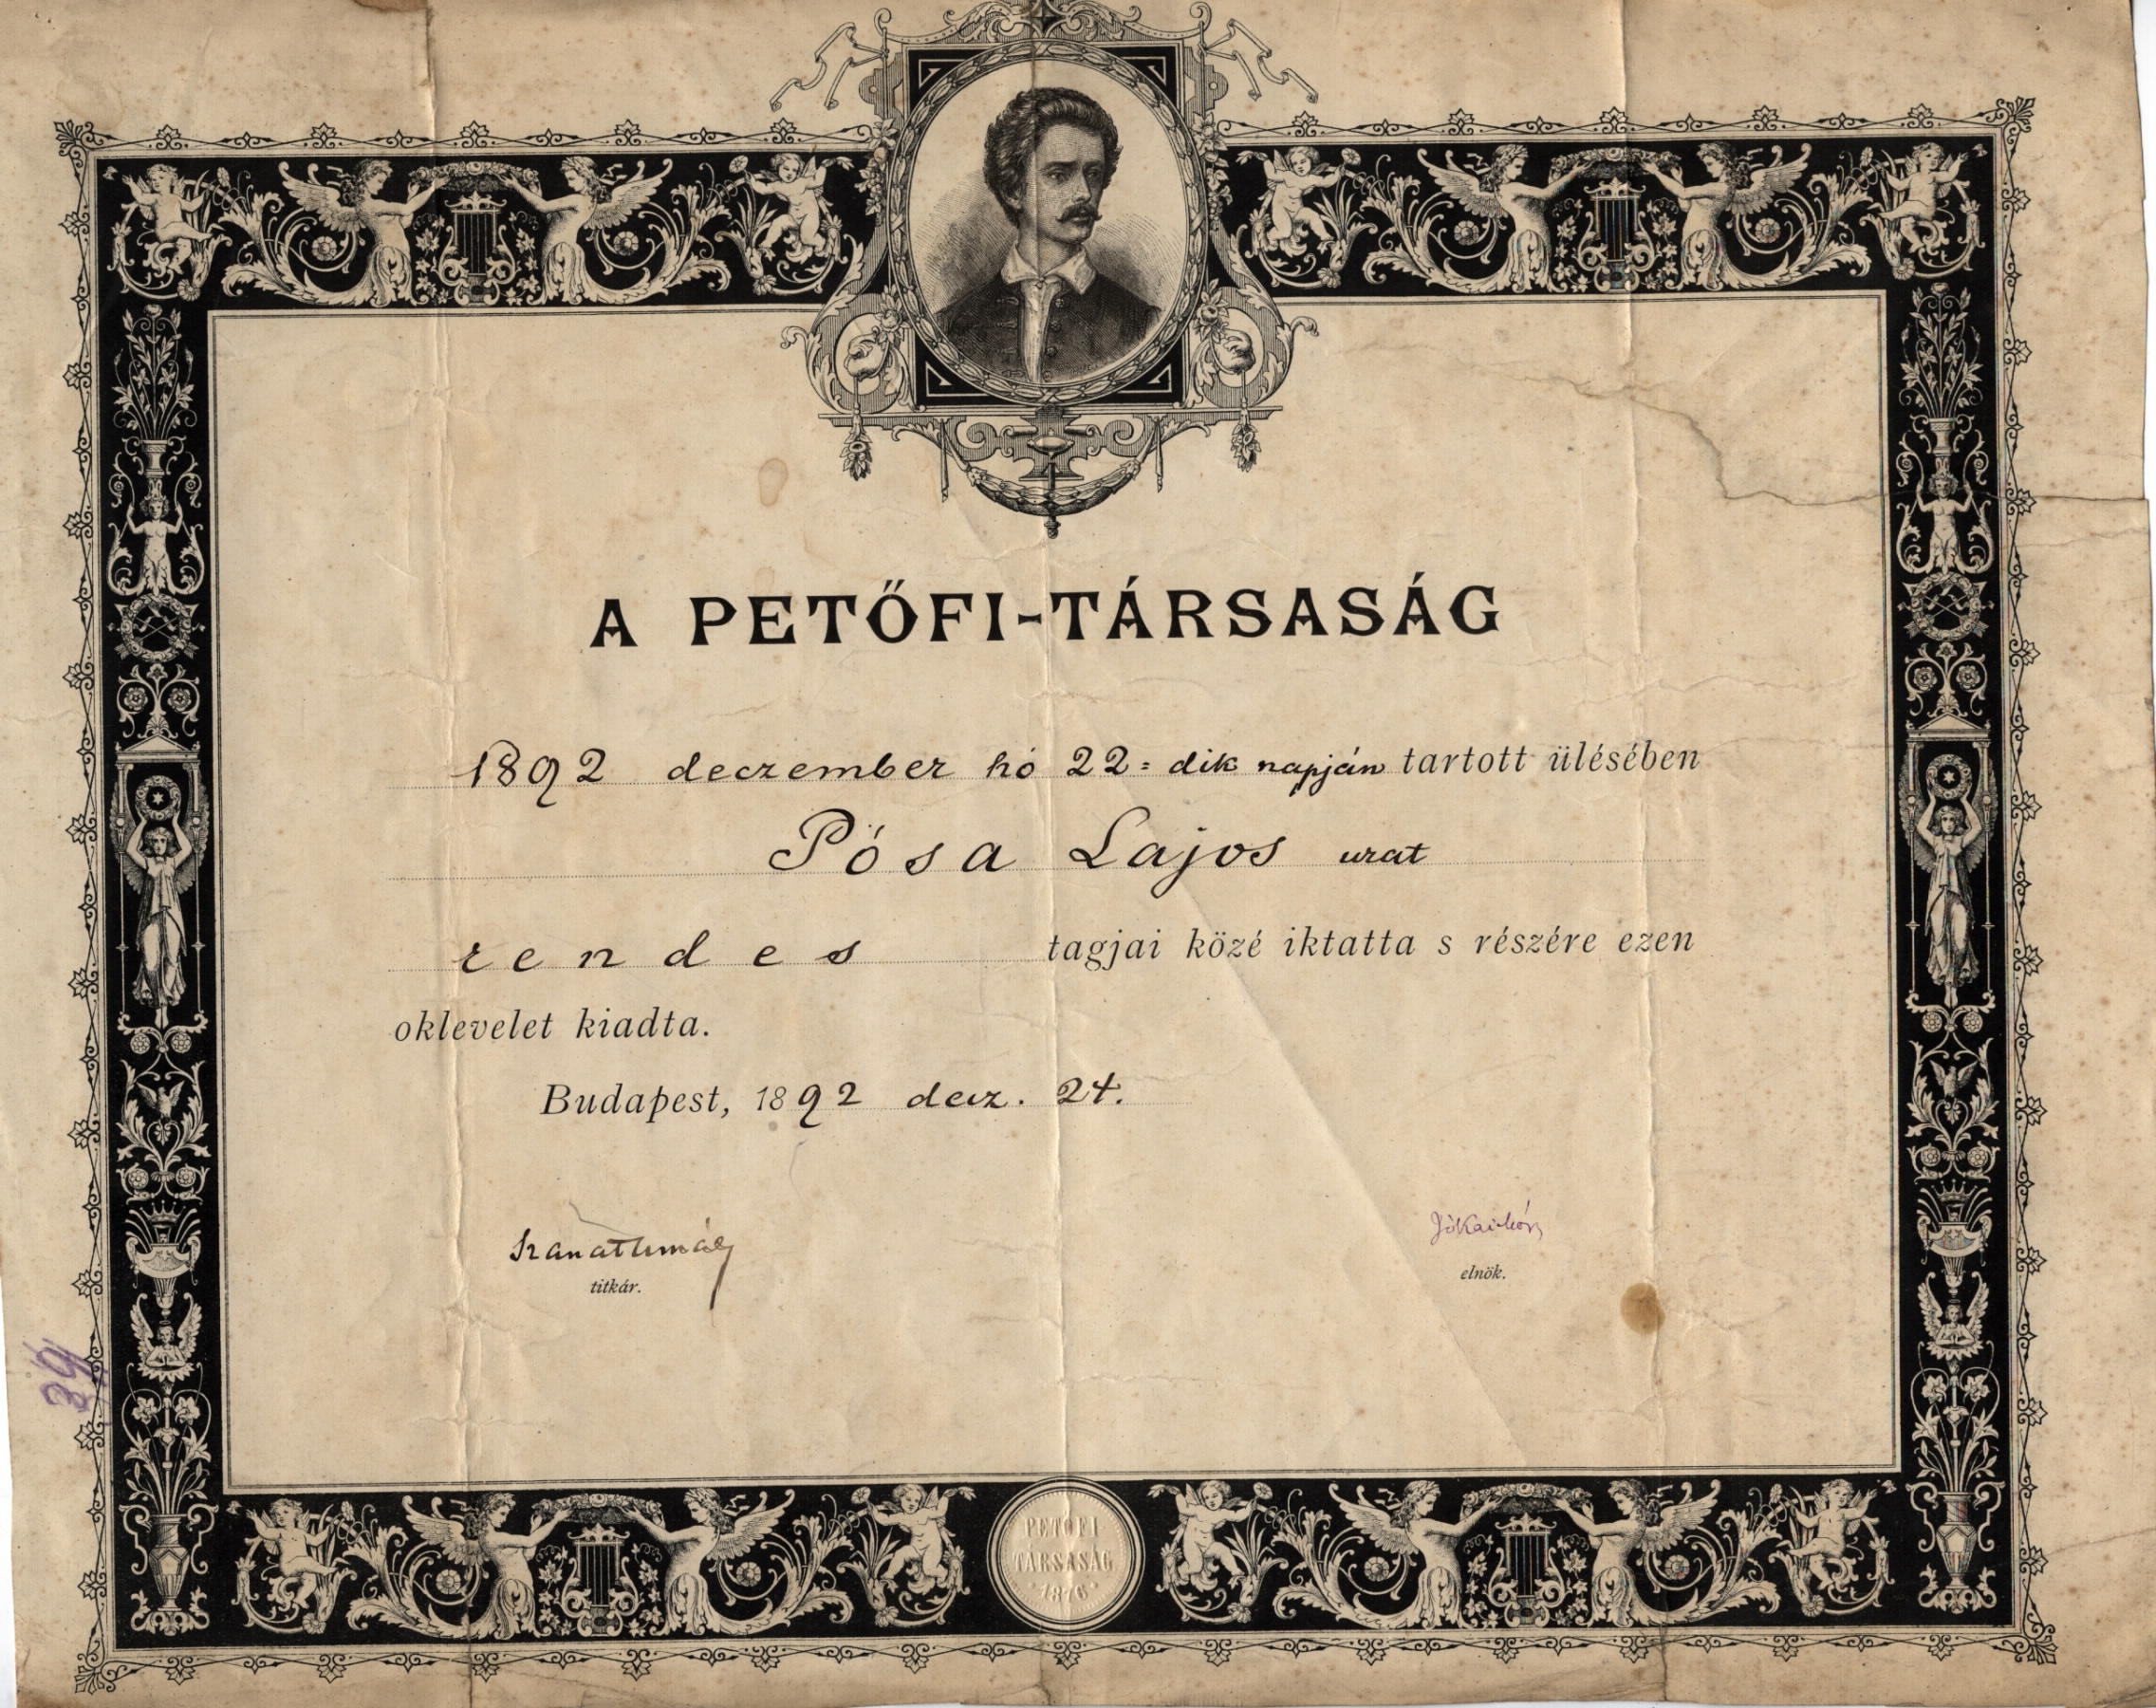 A PETŐFI-TÁRSASÁG
1892 deczember hó 22=dik napján tartott ülésében
Pósa Lajos urat
rendes tagjai közé iktatta s részére ezen
oklevelet kiadta.
Budapest, 1892 decz. 24.
Jókai Mór
titkár.
elnök.
39
PETŐFI
TÁRSASÁG
1876